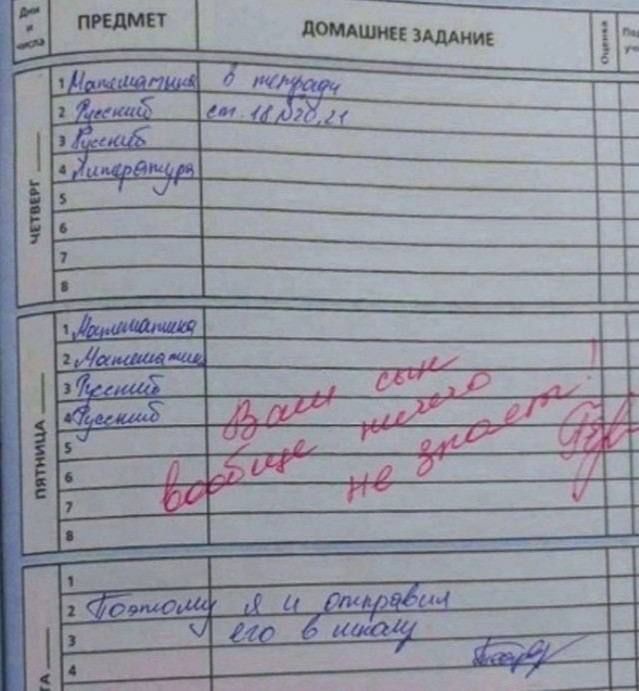 Дни и числа
ПРЕДМЕТ
ДОМАШНЕЕ ЗАДАНИЕ
Оценка
ЧЕТВЕРГ
1 Математика в тетради
2 Русский ст. 18 №20,21
3 Русский
4 Литература
5
6
7
8
ПЯТНИЦА
1 Математика
2 Математик
3 Русский
4 Русский
5
6
7
8
Ваш сын
вообще ничего
не знает!
1
2 Поэтому я и отправил
3 его в школу
4